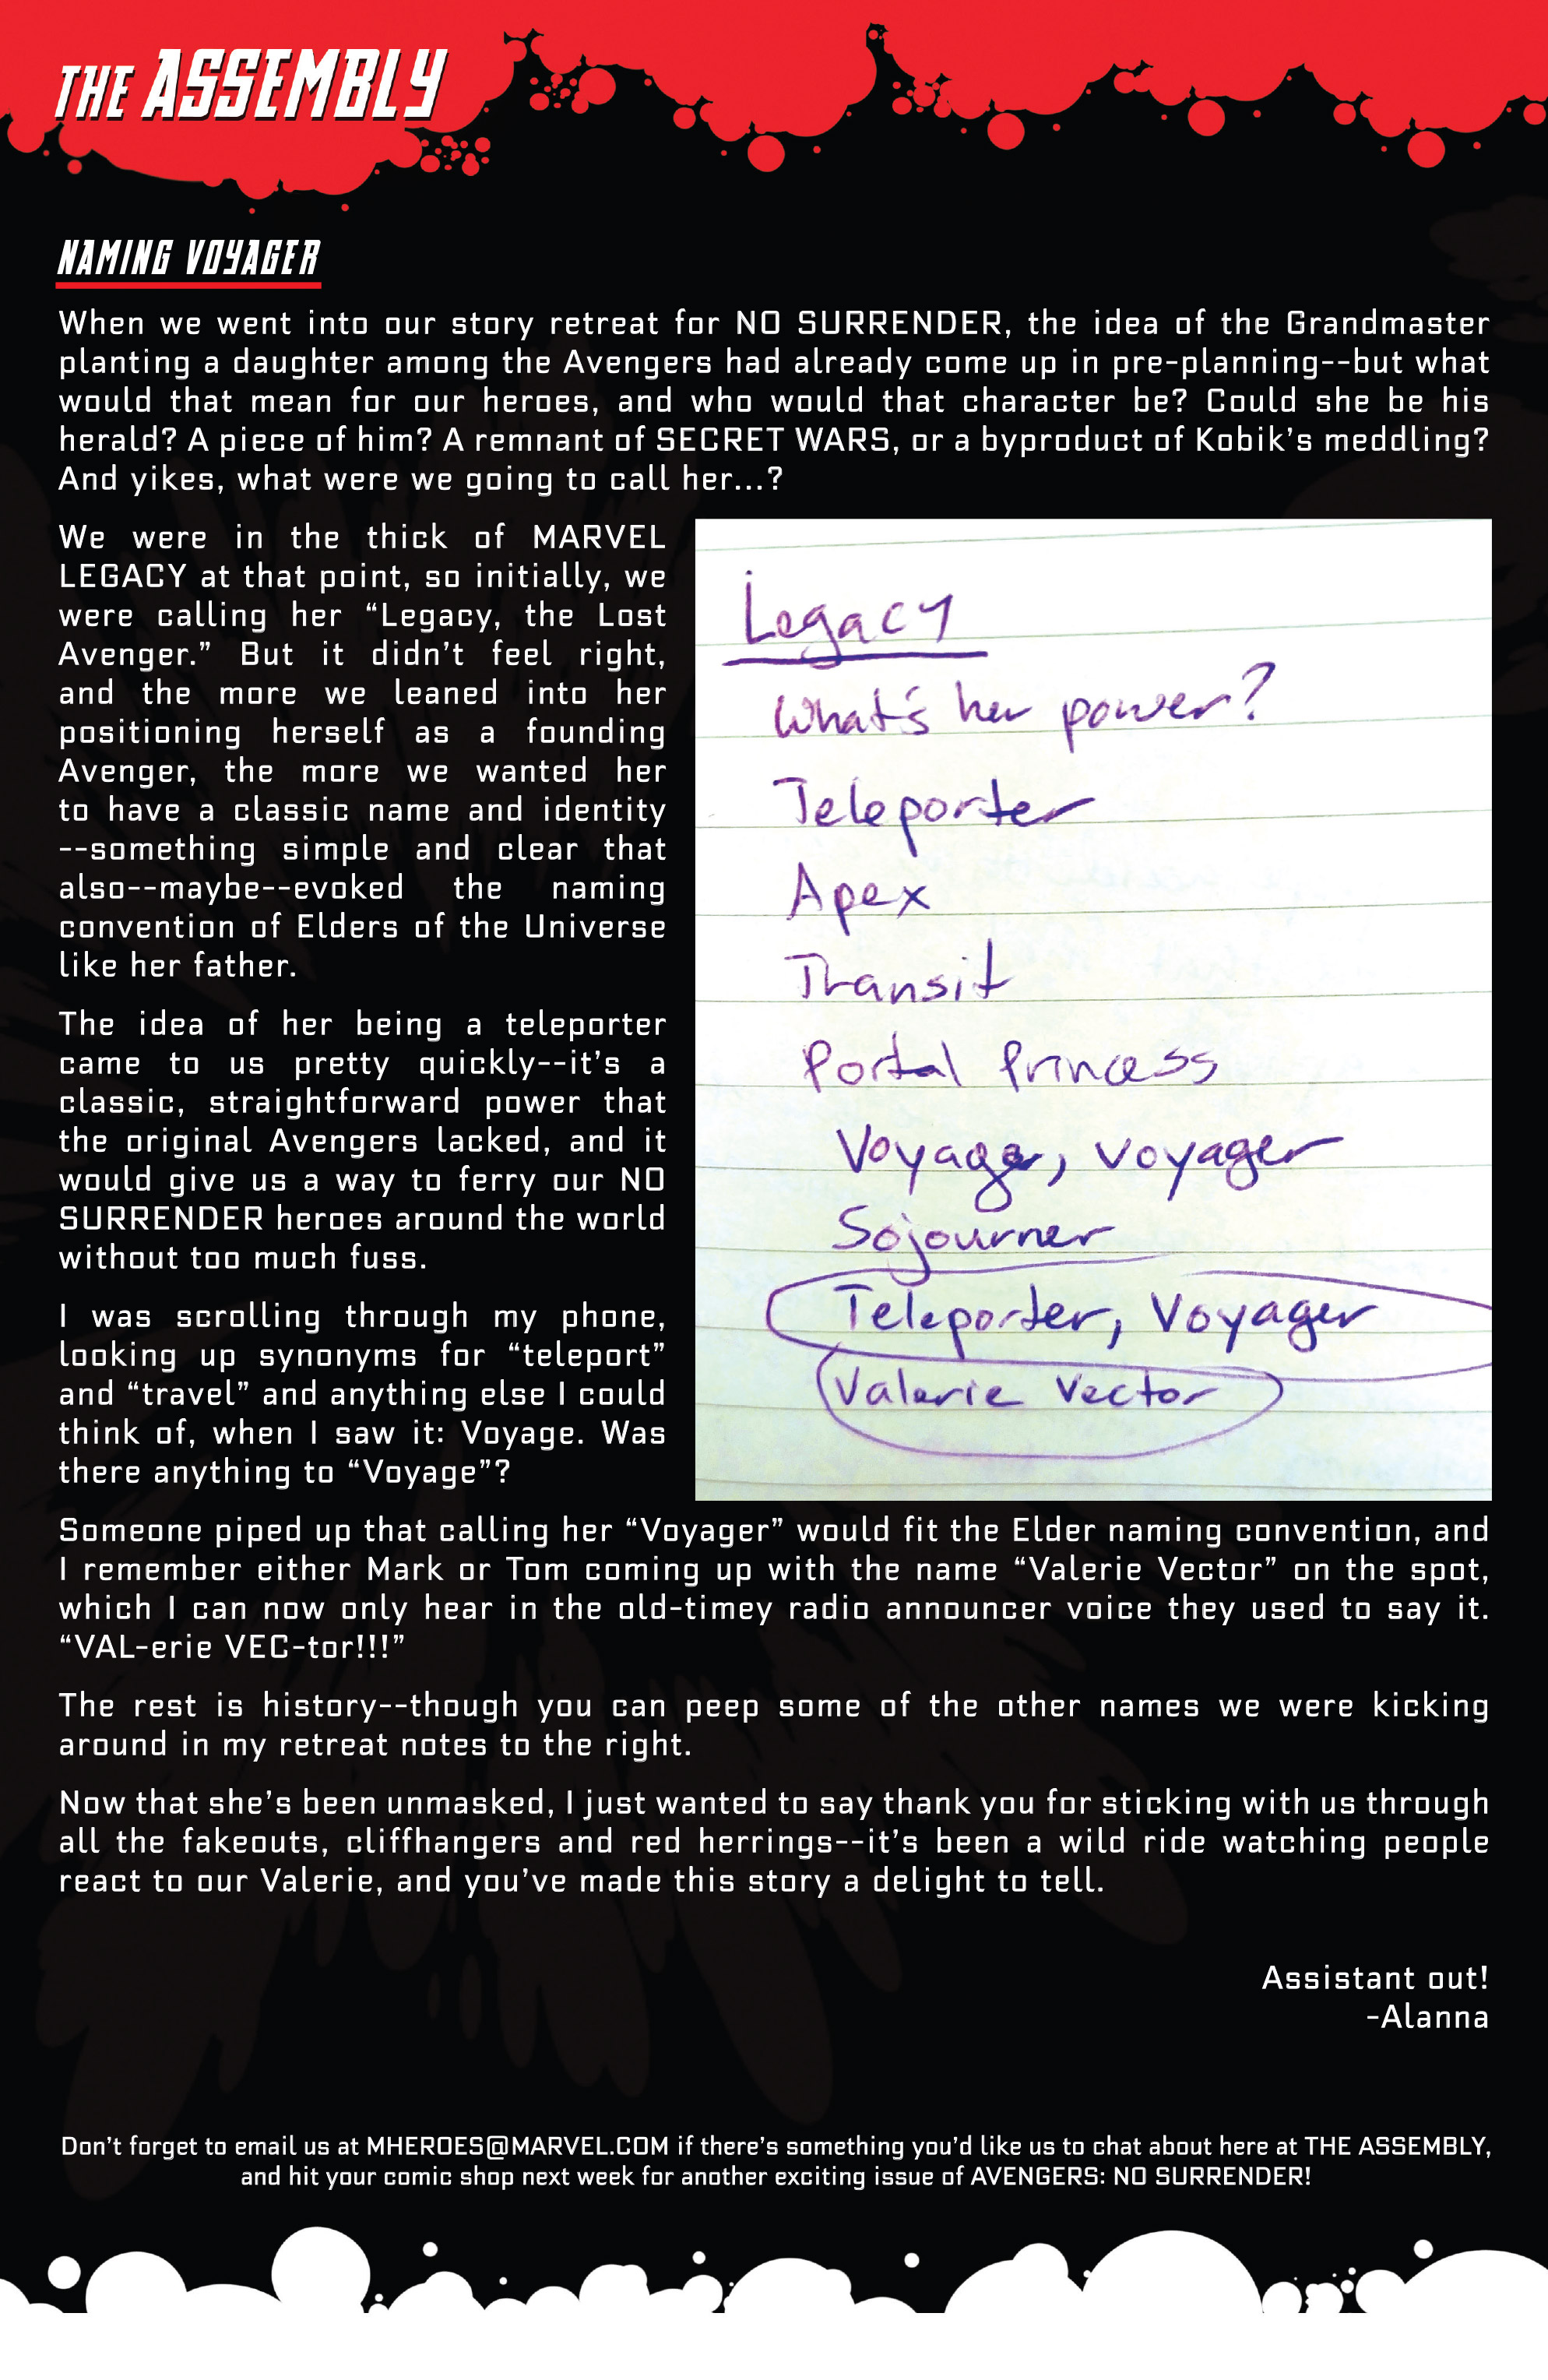 THE ASSEMBLY
NAMING VOYAGER
When we went into our story retreat for NO SURRENDER, the idea of the Grandmaster
planting a daughter among the Avengers had already come up in pre-planning--but what
would that mean for our heroes, and who would that character be? Could she be his
herald? A piece of him? A remnant of SECRET WARS, or a byproduct of Kobik's meddling?
And yikes, what were we going to call her...?
We were in the thick of MARVEL
LEGACY at that point, so initially, we
were calling her “Legacy, the Lost
Avenger.” But it didn't feel right,
and the more we leaned into her
positioning herself as a founding
Avenger, the more we wanted her
to have a classic name and identity
--something simple and clear that
also--maybe--evoked the naming
convention of Elders of the Universe
like her father.
The idea of her being a teleporter
came to us pretty quickly--it's a
classic, straightforward power that
the original Avengers lacked, and it
would give us a way to ferry our NO
SURRENDER heroes around the world
without too much fuss.
I was scrolling through my phone,
looking up synonyms for “teleport”
and “travel” and anything else I could
think of, when I saw it: Voyage. Was
there anything to “Voyage”?
Legacy
What's her power?
Teleporter
Apex
Transit
Portal Princess
Voyage, Voyager
Sojourner
Teleporter, Voyager
Valerie Vector
Someone piped up that calling her “Voyager” would fit the Elder naming convention, and
I remember either Mark or Tom coming up with the name “Valerie Vector” on the spot,
which I can now only hear in the old-timey radio announcer voice they used to say it.
“VAL-erie VEC-tor!!!”
The rest is history--though you can peep some of the other names we were kicking
around in my retreat notes to the right.
Now that she's been unmasked, I just wanted to say thank you for sticking with us through
all the fakeouts, cliffhangers and red herrings--it's been a wild ride watching people
react to our Valerie, and you've made this story a delight to tell.
Assistant out!
-Alanna
Don't forget to email us at MHEROES@MARVEL.COM if there's something you'd like us to chat about here at THE ASSEMBLY,
and hit your comic shop next week for another exciting issue of AVENGERS: NO SURRENDER!